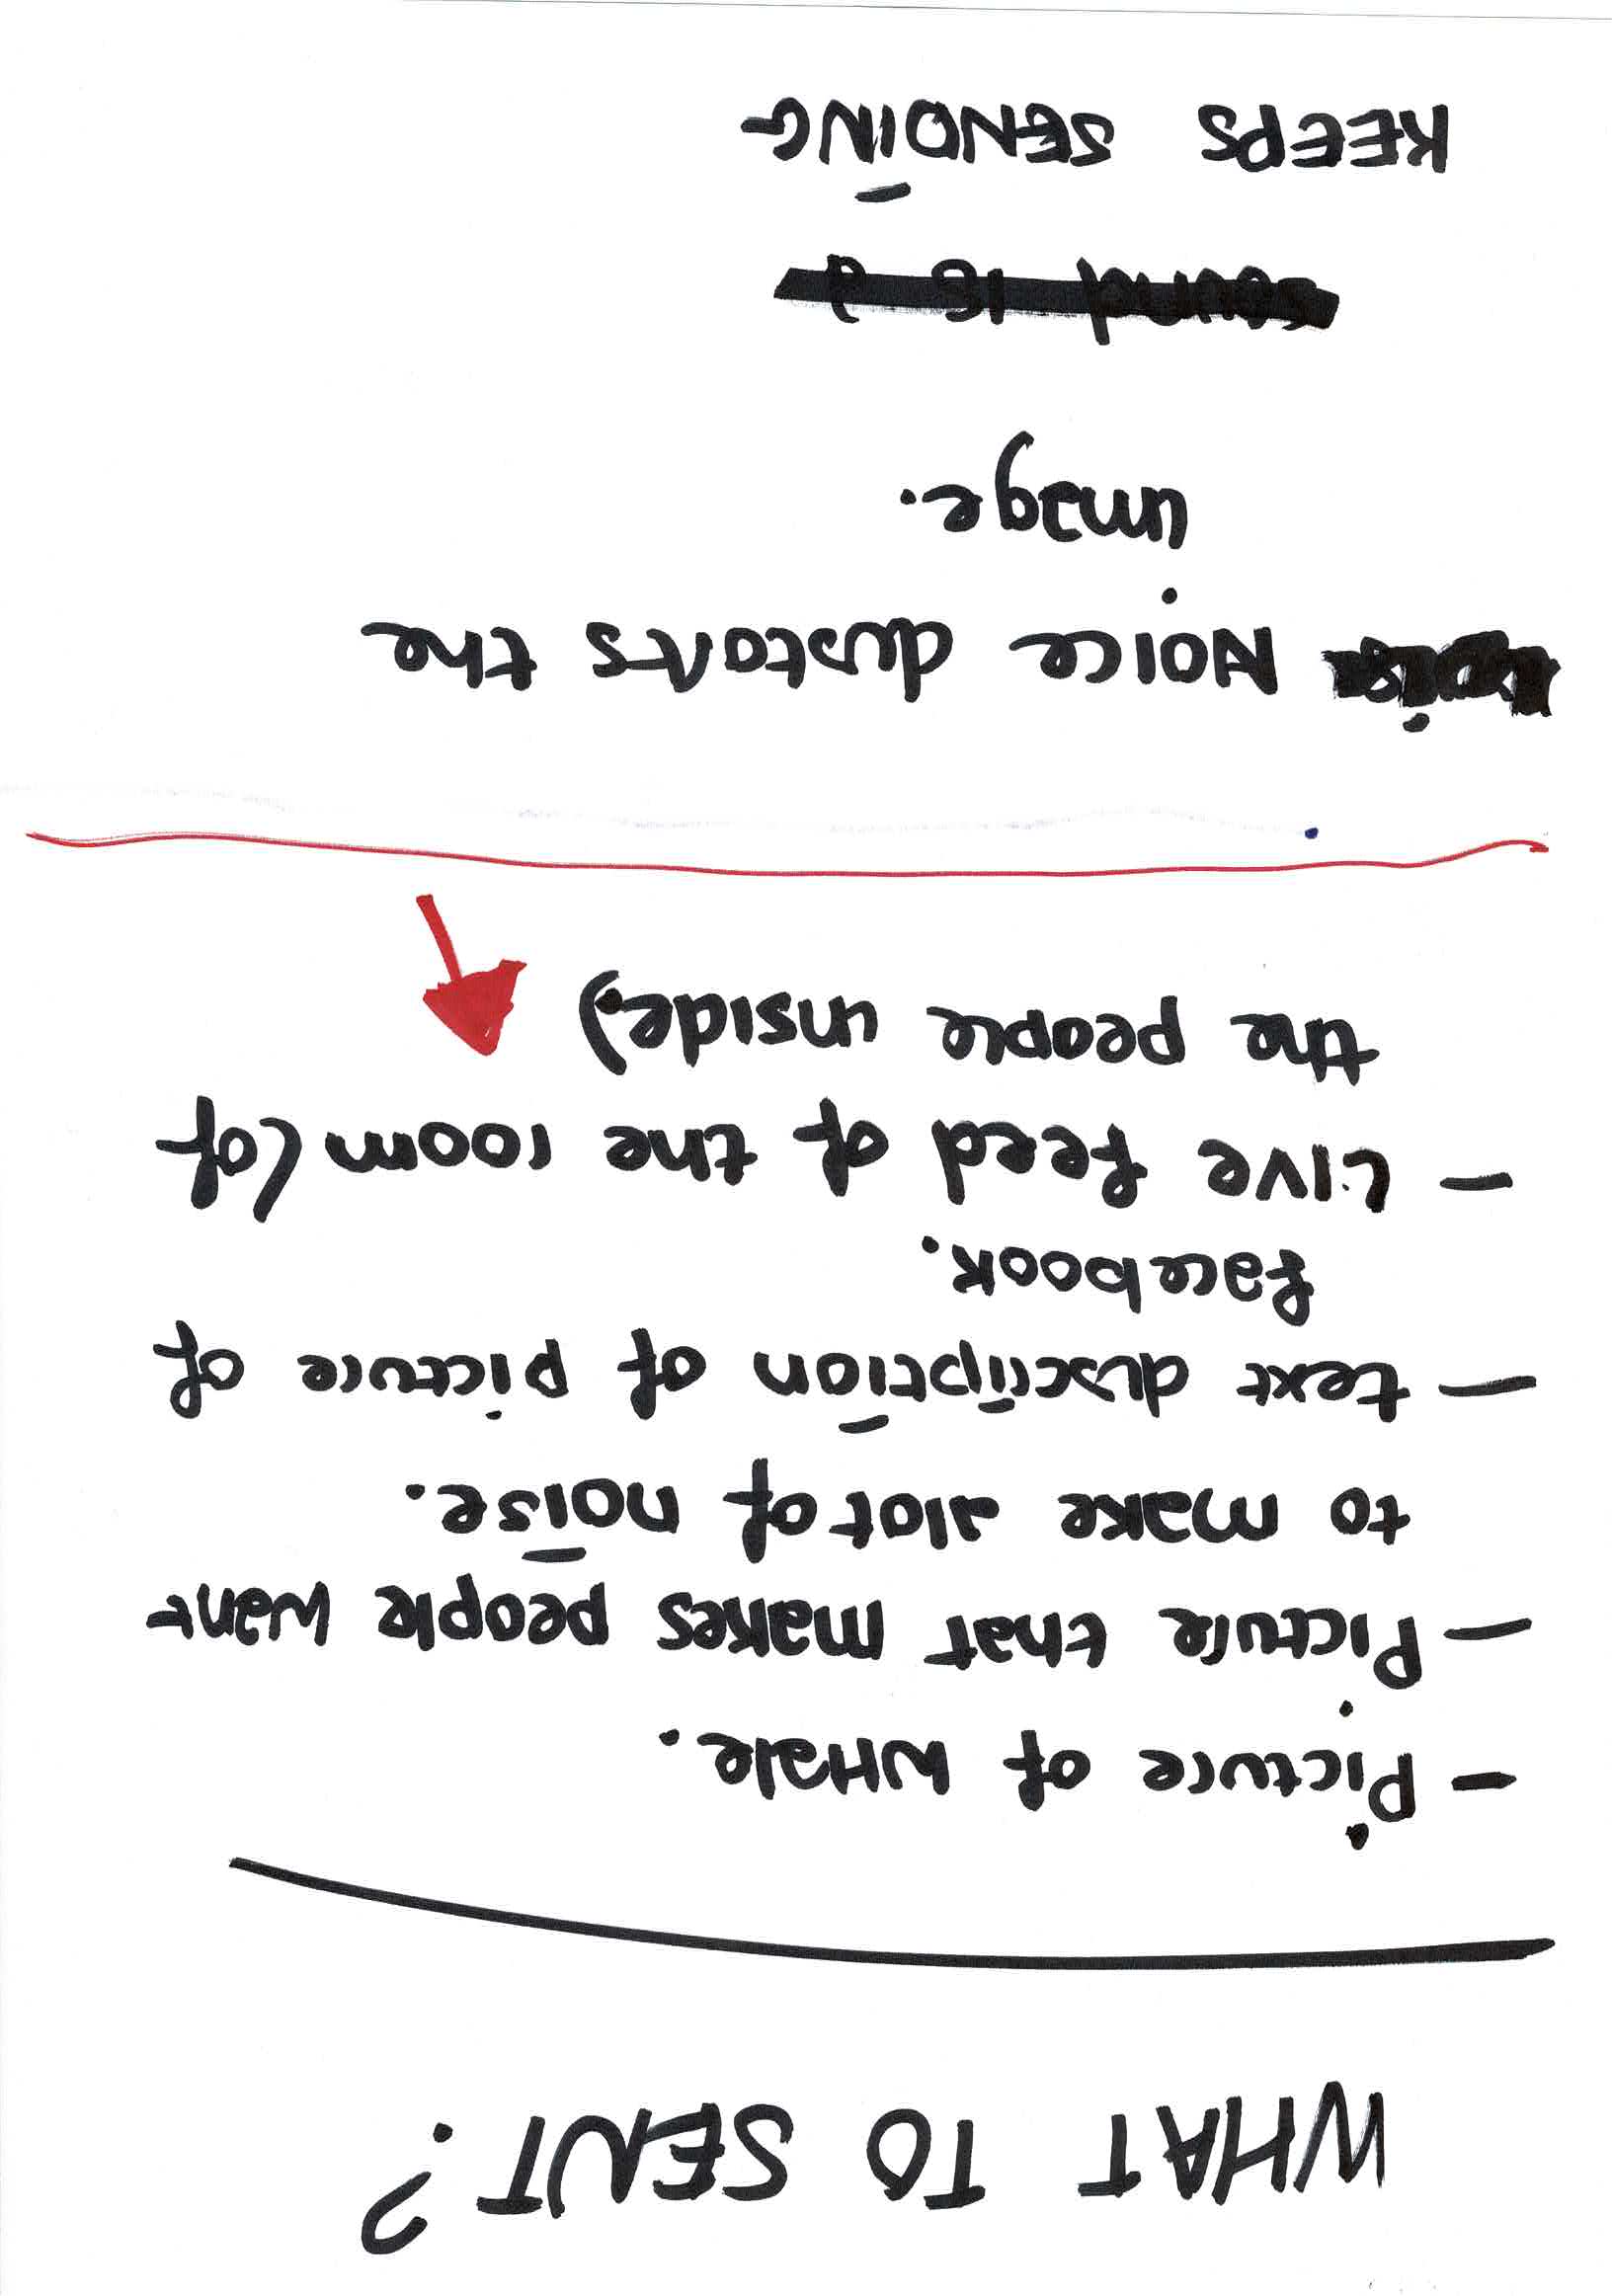 WHAT TO SENT?
- Picture of WHale.
- Picture that makes people want
to make alot of noise.
- text discription of picture of
facebook.
- LIVE feed of the room (of
the people inside.)
NOICE distorts the
image.
sound is a
KEEPS SENDING